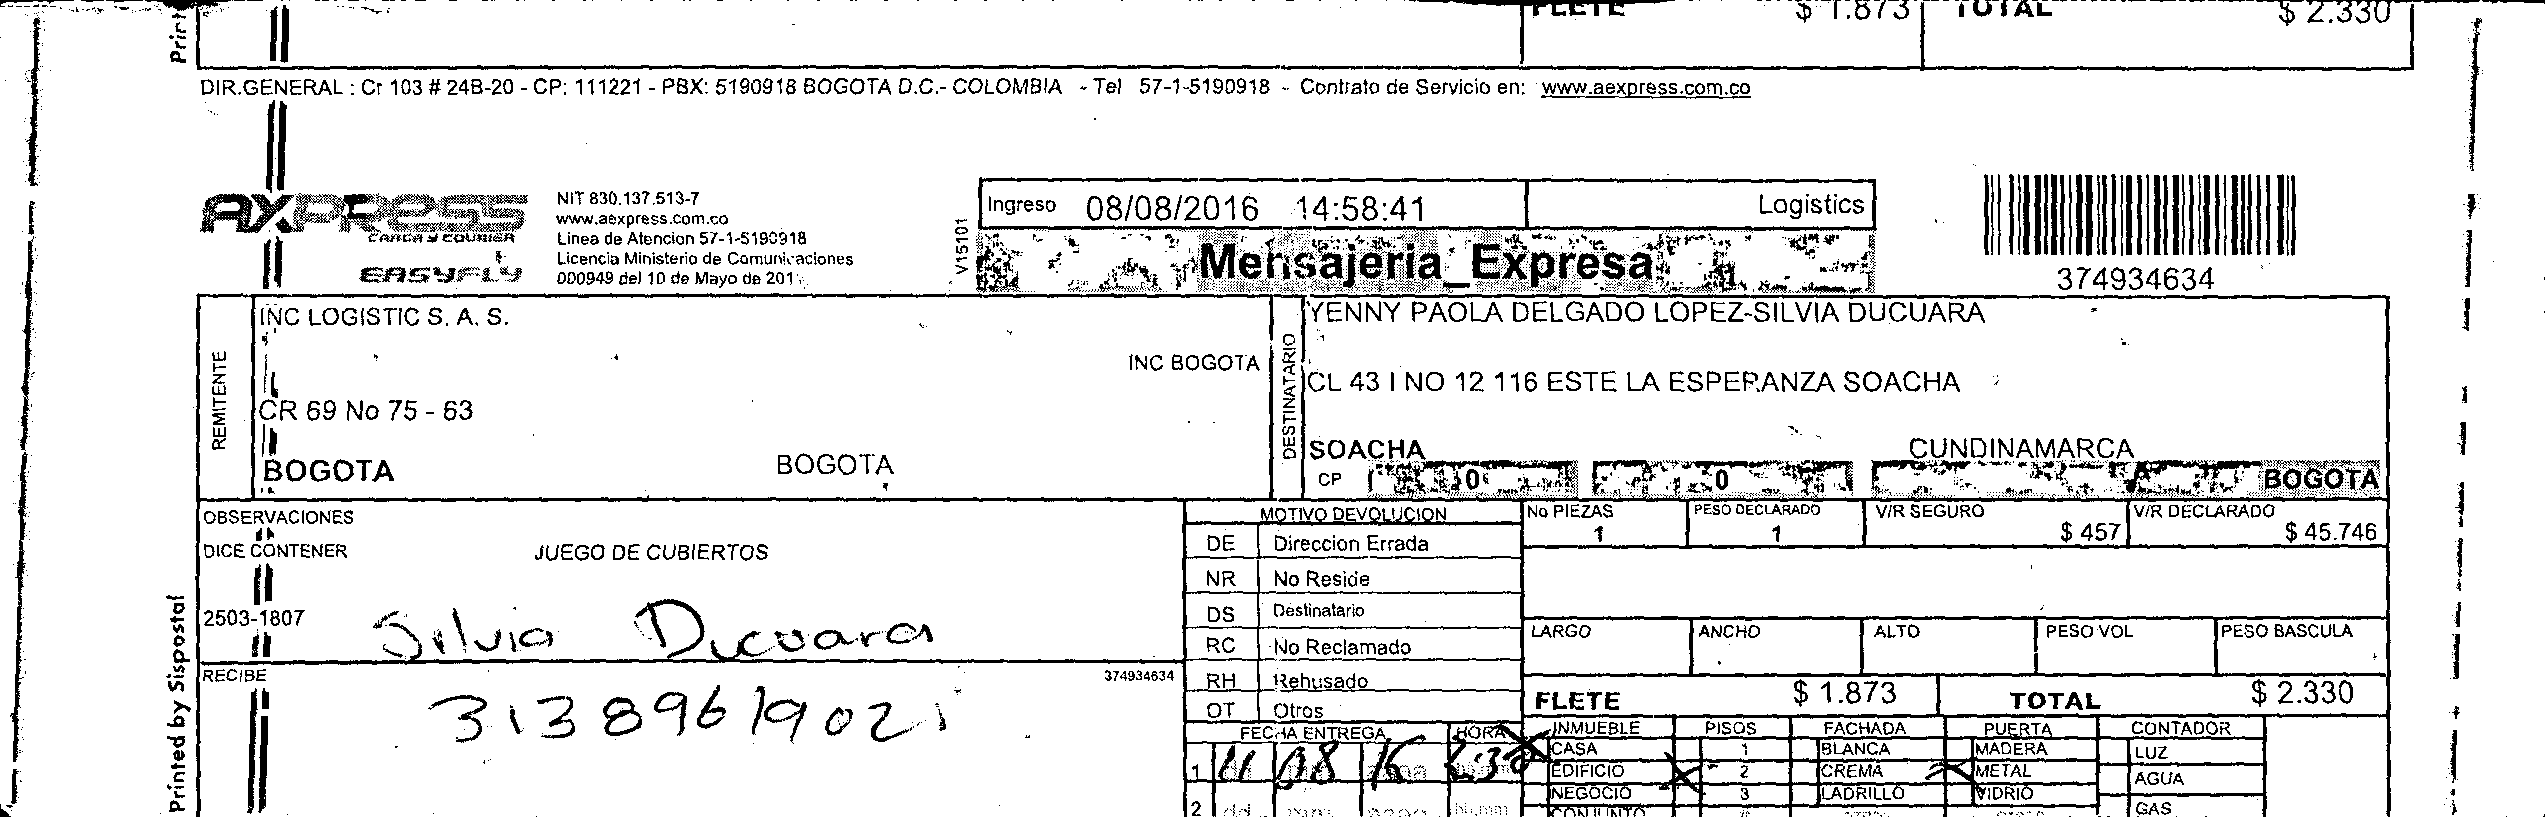 FLETE $ 1.873 TOTAL $ 2.330
DIR.GENERAL : Cr 103 # 24B-20 - CP: 111221 - PBX: 5190918 BOGOTA D.C.- COLOMBIA - Tel 57-1-5190918 - Contrato de Servicio en: www.aexpress.com.co
AXPRESS
CARGA Y COURIER
EASYFLY
NIT 830.137.513-7
www.aexpress.com.co
Linea de Atencion 57-1-5190918
Licencia Ministerio de Comunicaciones
000949 del 10 de Mayo de 201
V15101
Ingreso 08/08/2016 14:58:41 Logistics
Mensajeria_Expresa
374934634
REMITENTE
INC LOGISTIC S. A. S.
INC BOGOTA
CR 69 No 75 - 63
BOGOTA BOGOTA
DESTINATARIO
YENNY PAOLA DELGADO LOPEZ-SILVIA DUCUARA
CL 43 I NO 12 116 ESTE LA ESPERANZA SOACHA
SOACHA CUNDINAMARCA
CP 0 0 BOGOTA
OBSERVACIONES
DICE CONTENER JUEGO DE CUBIERTOS
2503-1807
Silvia Ducuara
RECIBE 374934634
3138961902
Printed by Sispostal
MOTIVO DEVOLUCION
DE Direccion Errada
NR No Reside
DS Destinatario
RC No Reclamado
RH Rehusado
OT Otros
No PIEZAS PESO DECLARADO V/R SEGURO V/R DECLARADO
1 1 $ 457 $ 45.746
LARGO ANCHO ALTO PESO VOL PESO BASCULA
FLETE $ 1.873 TOTAL $ 2.330
FECHA ENTREGA HORA
1 11 08 16 2:30
2 dd mm aaaa hh:mm
INMUEBLE PISOS FACHADA PUERTA CONTADOR
CASA 1 BLANCA MADERA LUZ
EDIFICIO 2 CREMA METAL AGUA
NEGOCIO 3 LADRILLO VIDRIO GAS
CONJUNTO